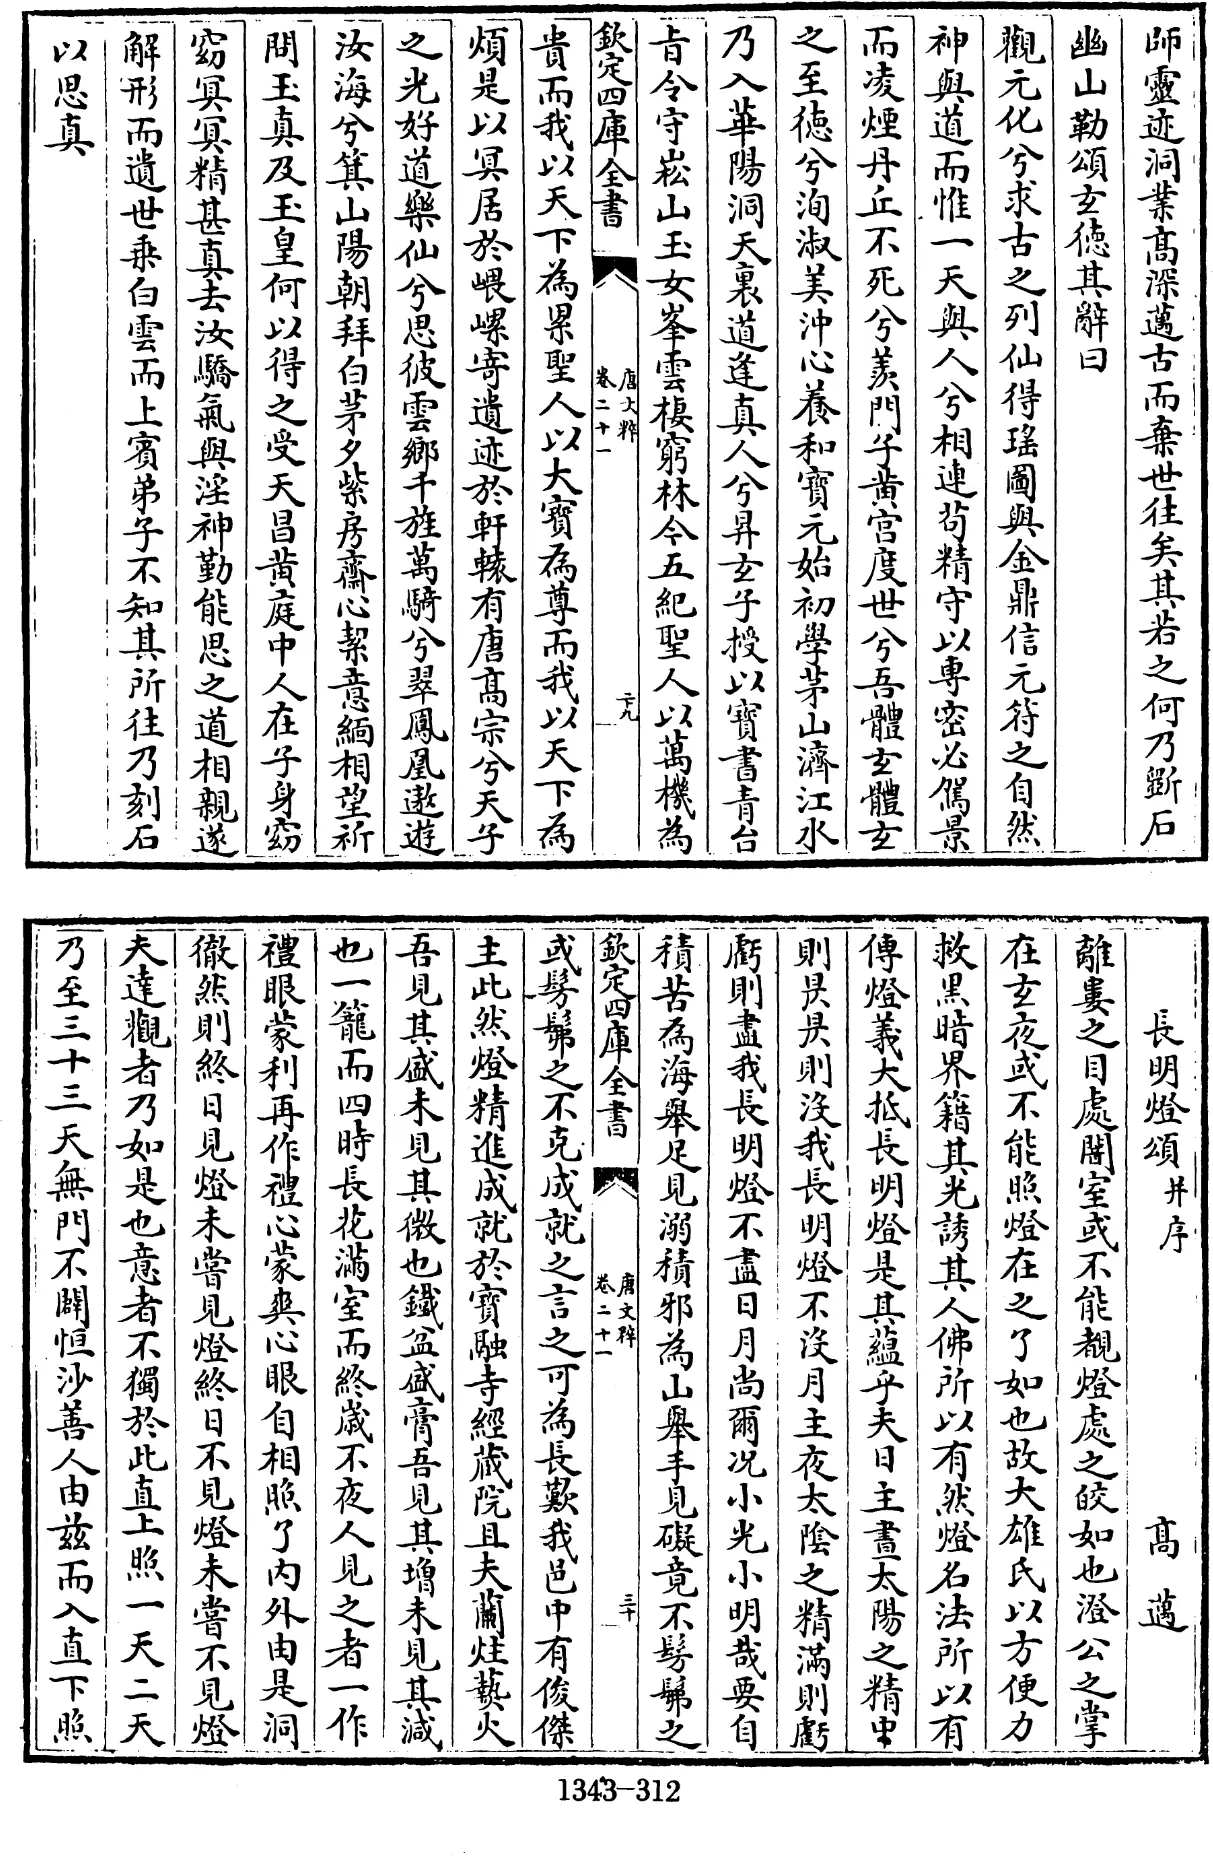 師靈迹洞業髙深邁古而棄世往矣其若之何乃斵石
幽山勒頌玄徳其辭曰
觀元化兮求古之列仙得瑤圖與金鼎信元符之自然
神與道而惟一天與人兮相連苟精守以專密必駕景
而凌煙丹丘不死兮羨門子黄宫度世兮吾體玄體玄
之至徳兮洵淑美沖心養和寶元始初學茅山濟江水
乃入華陽洞天裏道逢真人兮昇玄子授以寶書青台
旨令守崧山玉女峯雲棲窮林今五紀聖人以萬機為
欽定四庫全書
唐文粹
卷二十一
二十九
貴而我以天下為累聖人以大寶為尊而我以天下為
煩是以冥居於㟪㠢寄遺迹於軒轅有唐髙宗兮天子
之光好道樂仙兮思彼雲鄉千旌萬騎兮翠鳳凰遨遊
汝海兮箕山陽朝拜白茅夕紫房齋心絜意緬相望祈
問玉真及玉皇何以得之受天昌黄庭中人在子身窈
窈冥冥精甚真去汝驕氣與淫神勤能思之道相親遂
解形而遺世乗白雲而上賓弟子不知其所往乃刻石
以思真
長明燈頌并序 髙邁
離婁之目處闇室或不能覩燈處之皎如也澄公之掌
在玄夜或不能照燈在之了如也故大雄氏以方便力
救黒暗界籍其光誘其人佛所以有然燈名法所以有
傳燈義大抵長明燈是其藴乎夫日主晝太陽之精中
則昃昃則沒我長明燈不沒月主夜太陰之精滿則虧
虧則盡我長明燈不盡日月尚爾况小光小明哉要自
積苦為海舉足見溺積邪為山舉手見礙竟不髣髴之
欽定四庫全書
唐文粹
卷二十一
三十
或髣髴之不克成就之言之可為長歎我邑中有俊傑
主此然燈精進成就於寶融寺經蔵院且夫蘭炷爇火
吾見其盛未見其微也鐵盆盛膏吾見其增未見其減
也一籠而四時長花滿室而終嵗不夜人見之者一作
禮眼蒙利再作禮心蒙爽心眼自相照了内外由是洞
徹然則終日見燈未嘗見燈終日不見燈未嘗不見燈
夫達觀者乃如是也意者不獨於此直上照一天二天
乃至三十三天無門不闢恒沙善人由兹而入直下照
1343-312